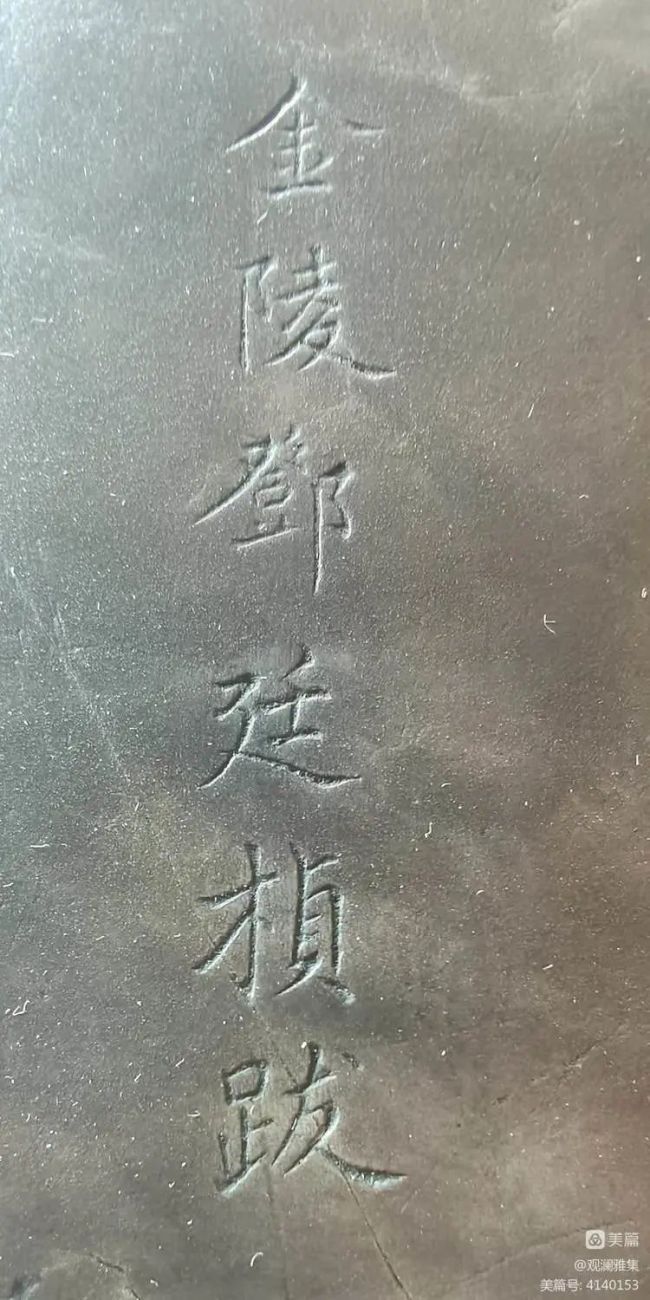 金陵鄧廷楨跋
美篇
@观澜雅集
美篇号: 4140153